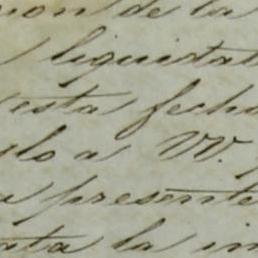 ion de la
liquidat
esta fecha
lo a VV.
a presente
ata la in